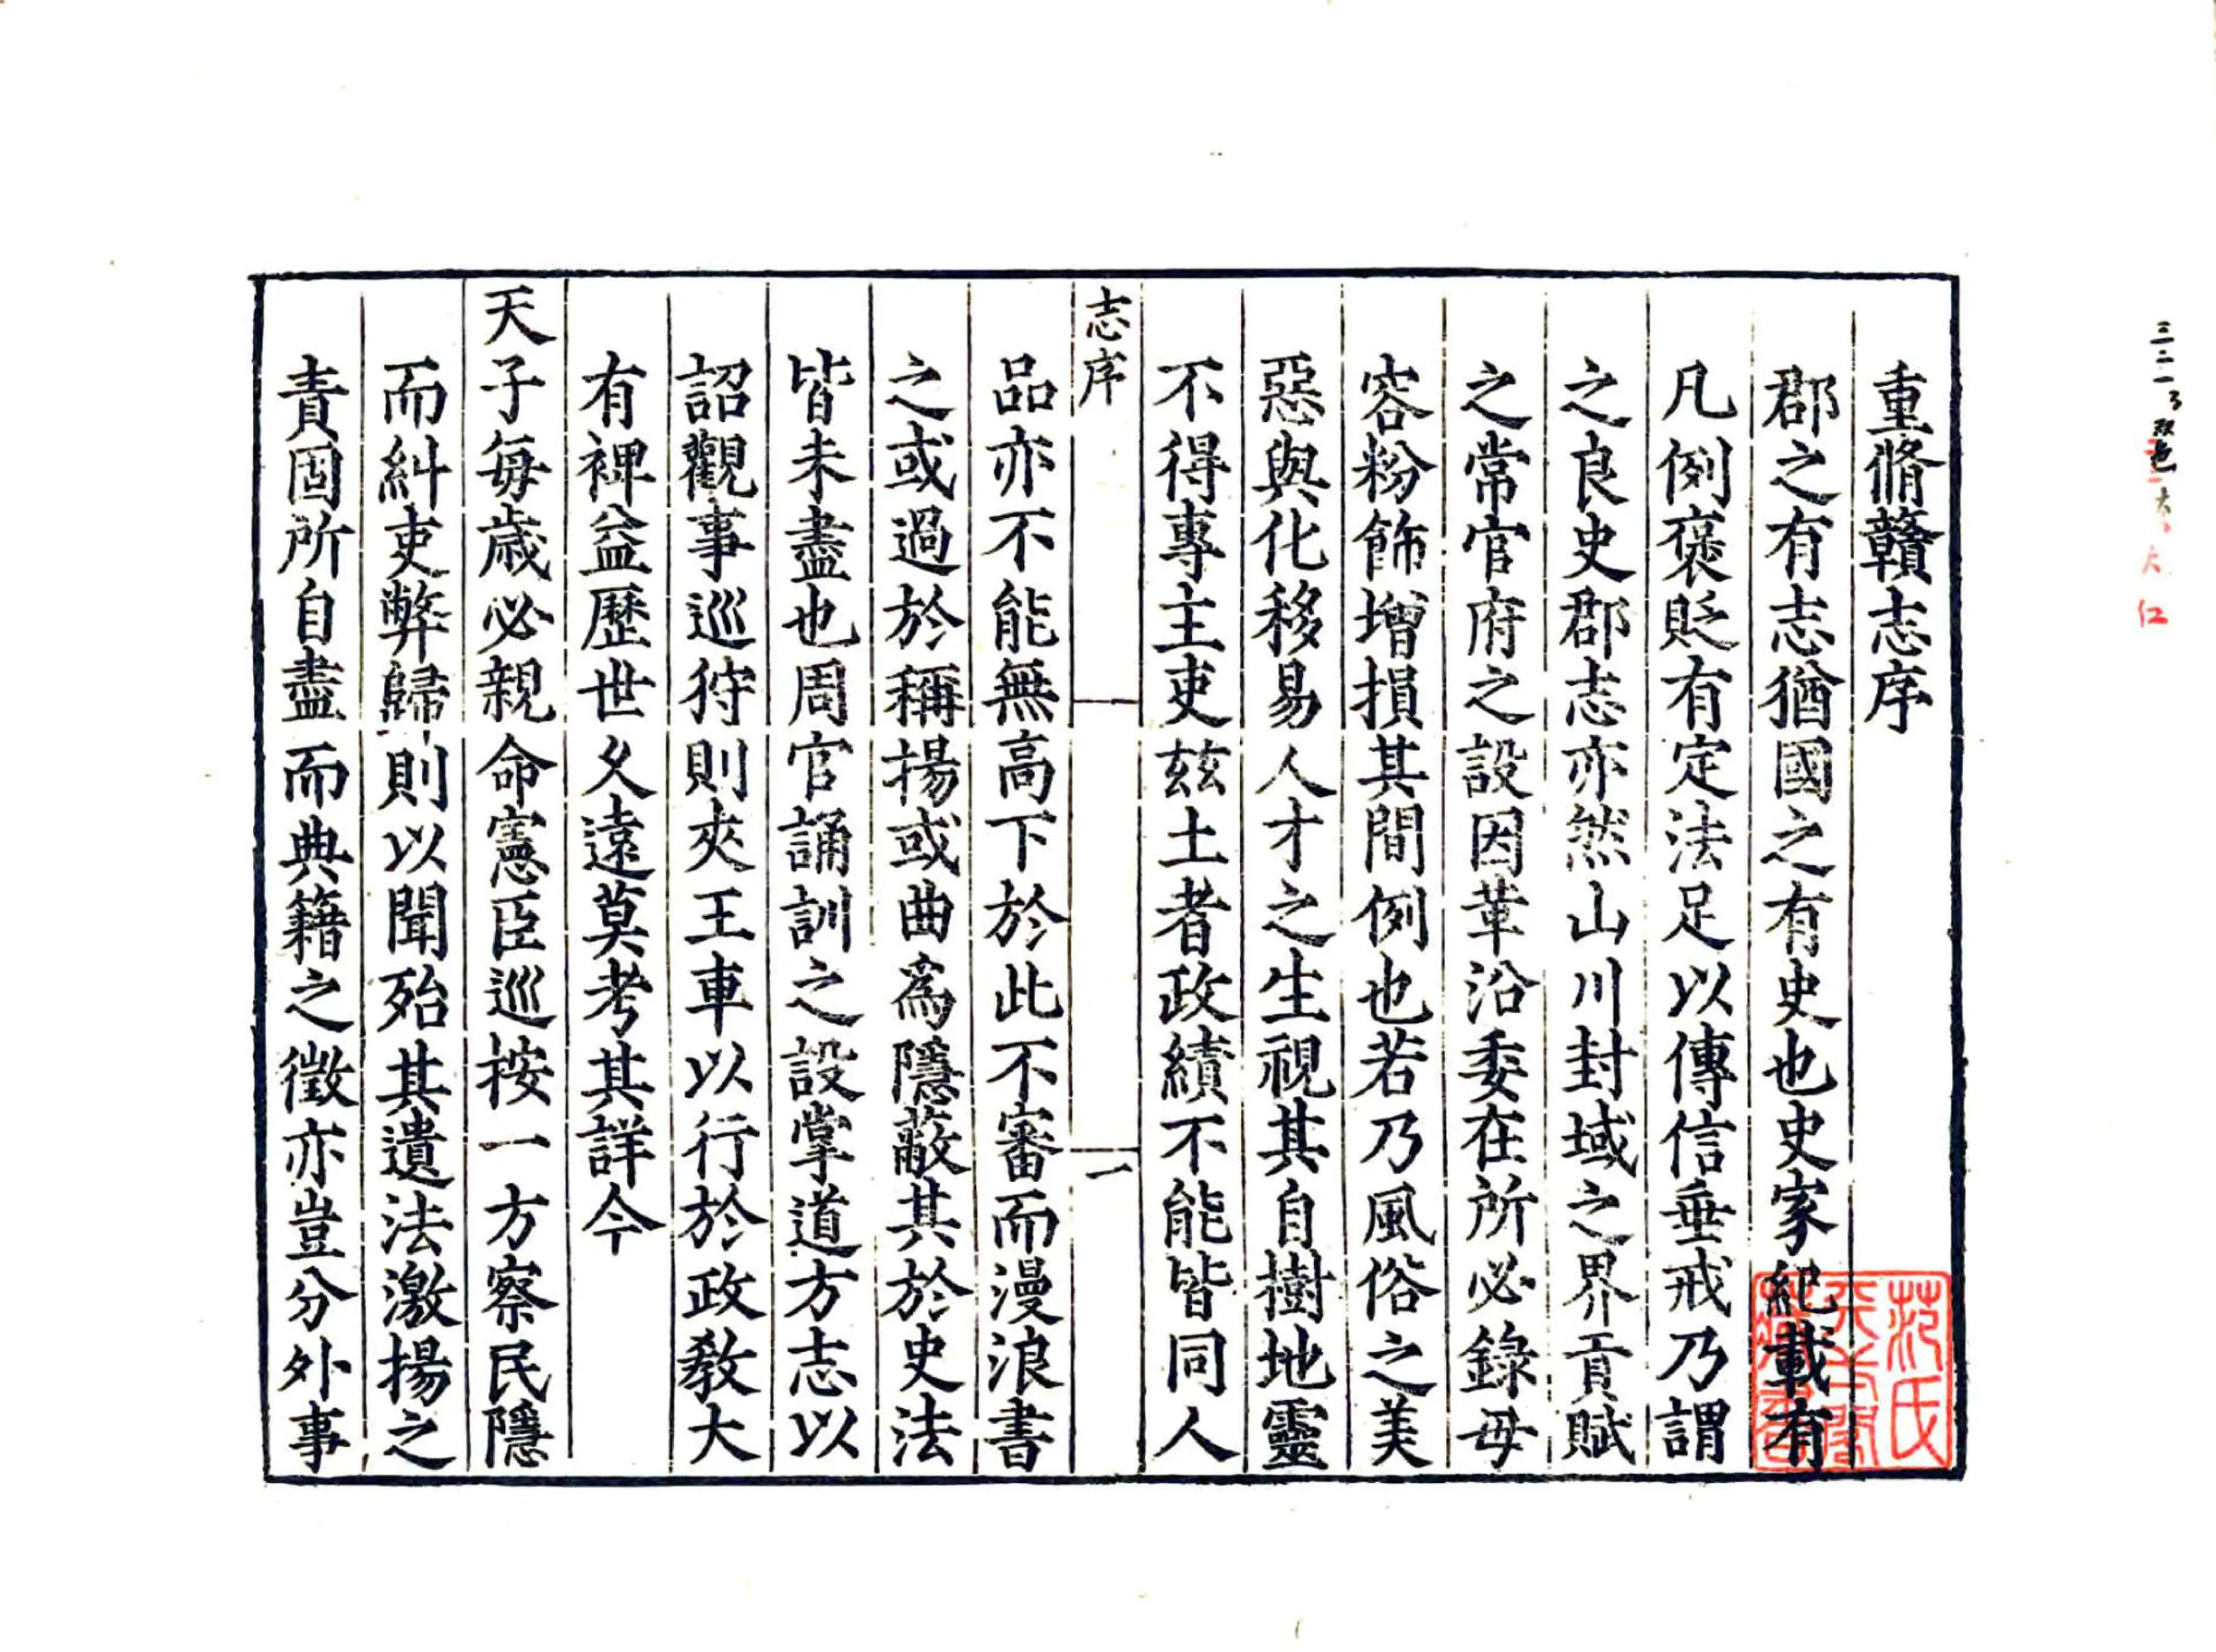 重脩贛志序
郡之有志猶國之有史也史家紀載有
凡例褒貶有定法足以傳信垂戒乃謂
之良史郡志亦然山川封域之界貢賦
之常官府之設因革沿委在所必錄毋
容粉飾增損其間例也若乃風俗之美
惡與化移易人才之生視其自樹地靈
不得專主吏玆土者政績不能皆同人
志序
一
品亦不能無高下於此不審而漫浪書
之或過於稱揚或曲爲隱蔽其於史法
皆未盡也周官誦訓之設掌道方志以
詔觀事巡狩則夾王車以行於政敎大
有裨益歷世夂遠莫考其詳今
天子每歳必親命憲臣巡按一方察民隱
而糾吏弊歸則以聞殆其遺法激揚之
責固所自盡而典籍之徵亦豈分外事
范氏